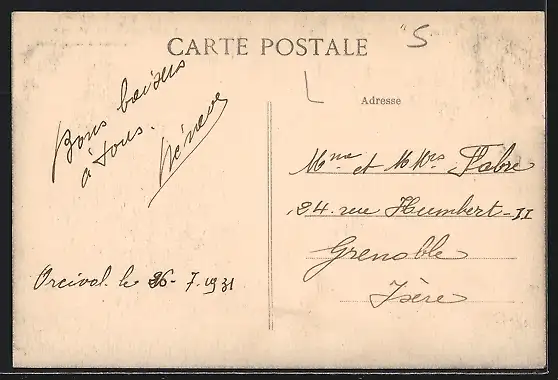 CARTE POSTALE
S
L
Adresse
Bons baisers
à tous.
Orcival. le 26- 7. 1931
Mme et M Mrs Fabre
24. rue Humbert-II
Grenoble
Isère